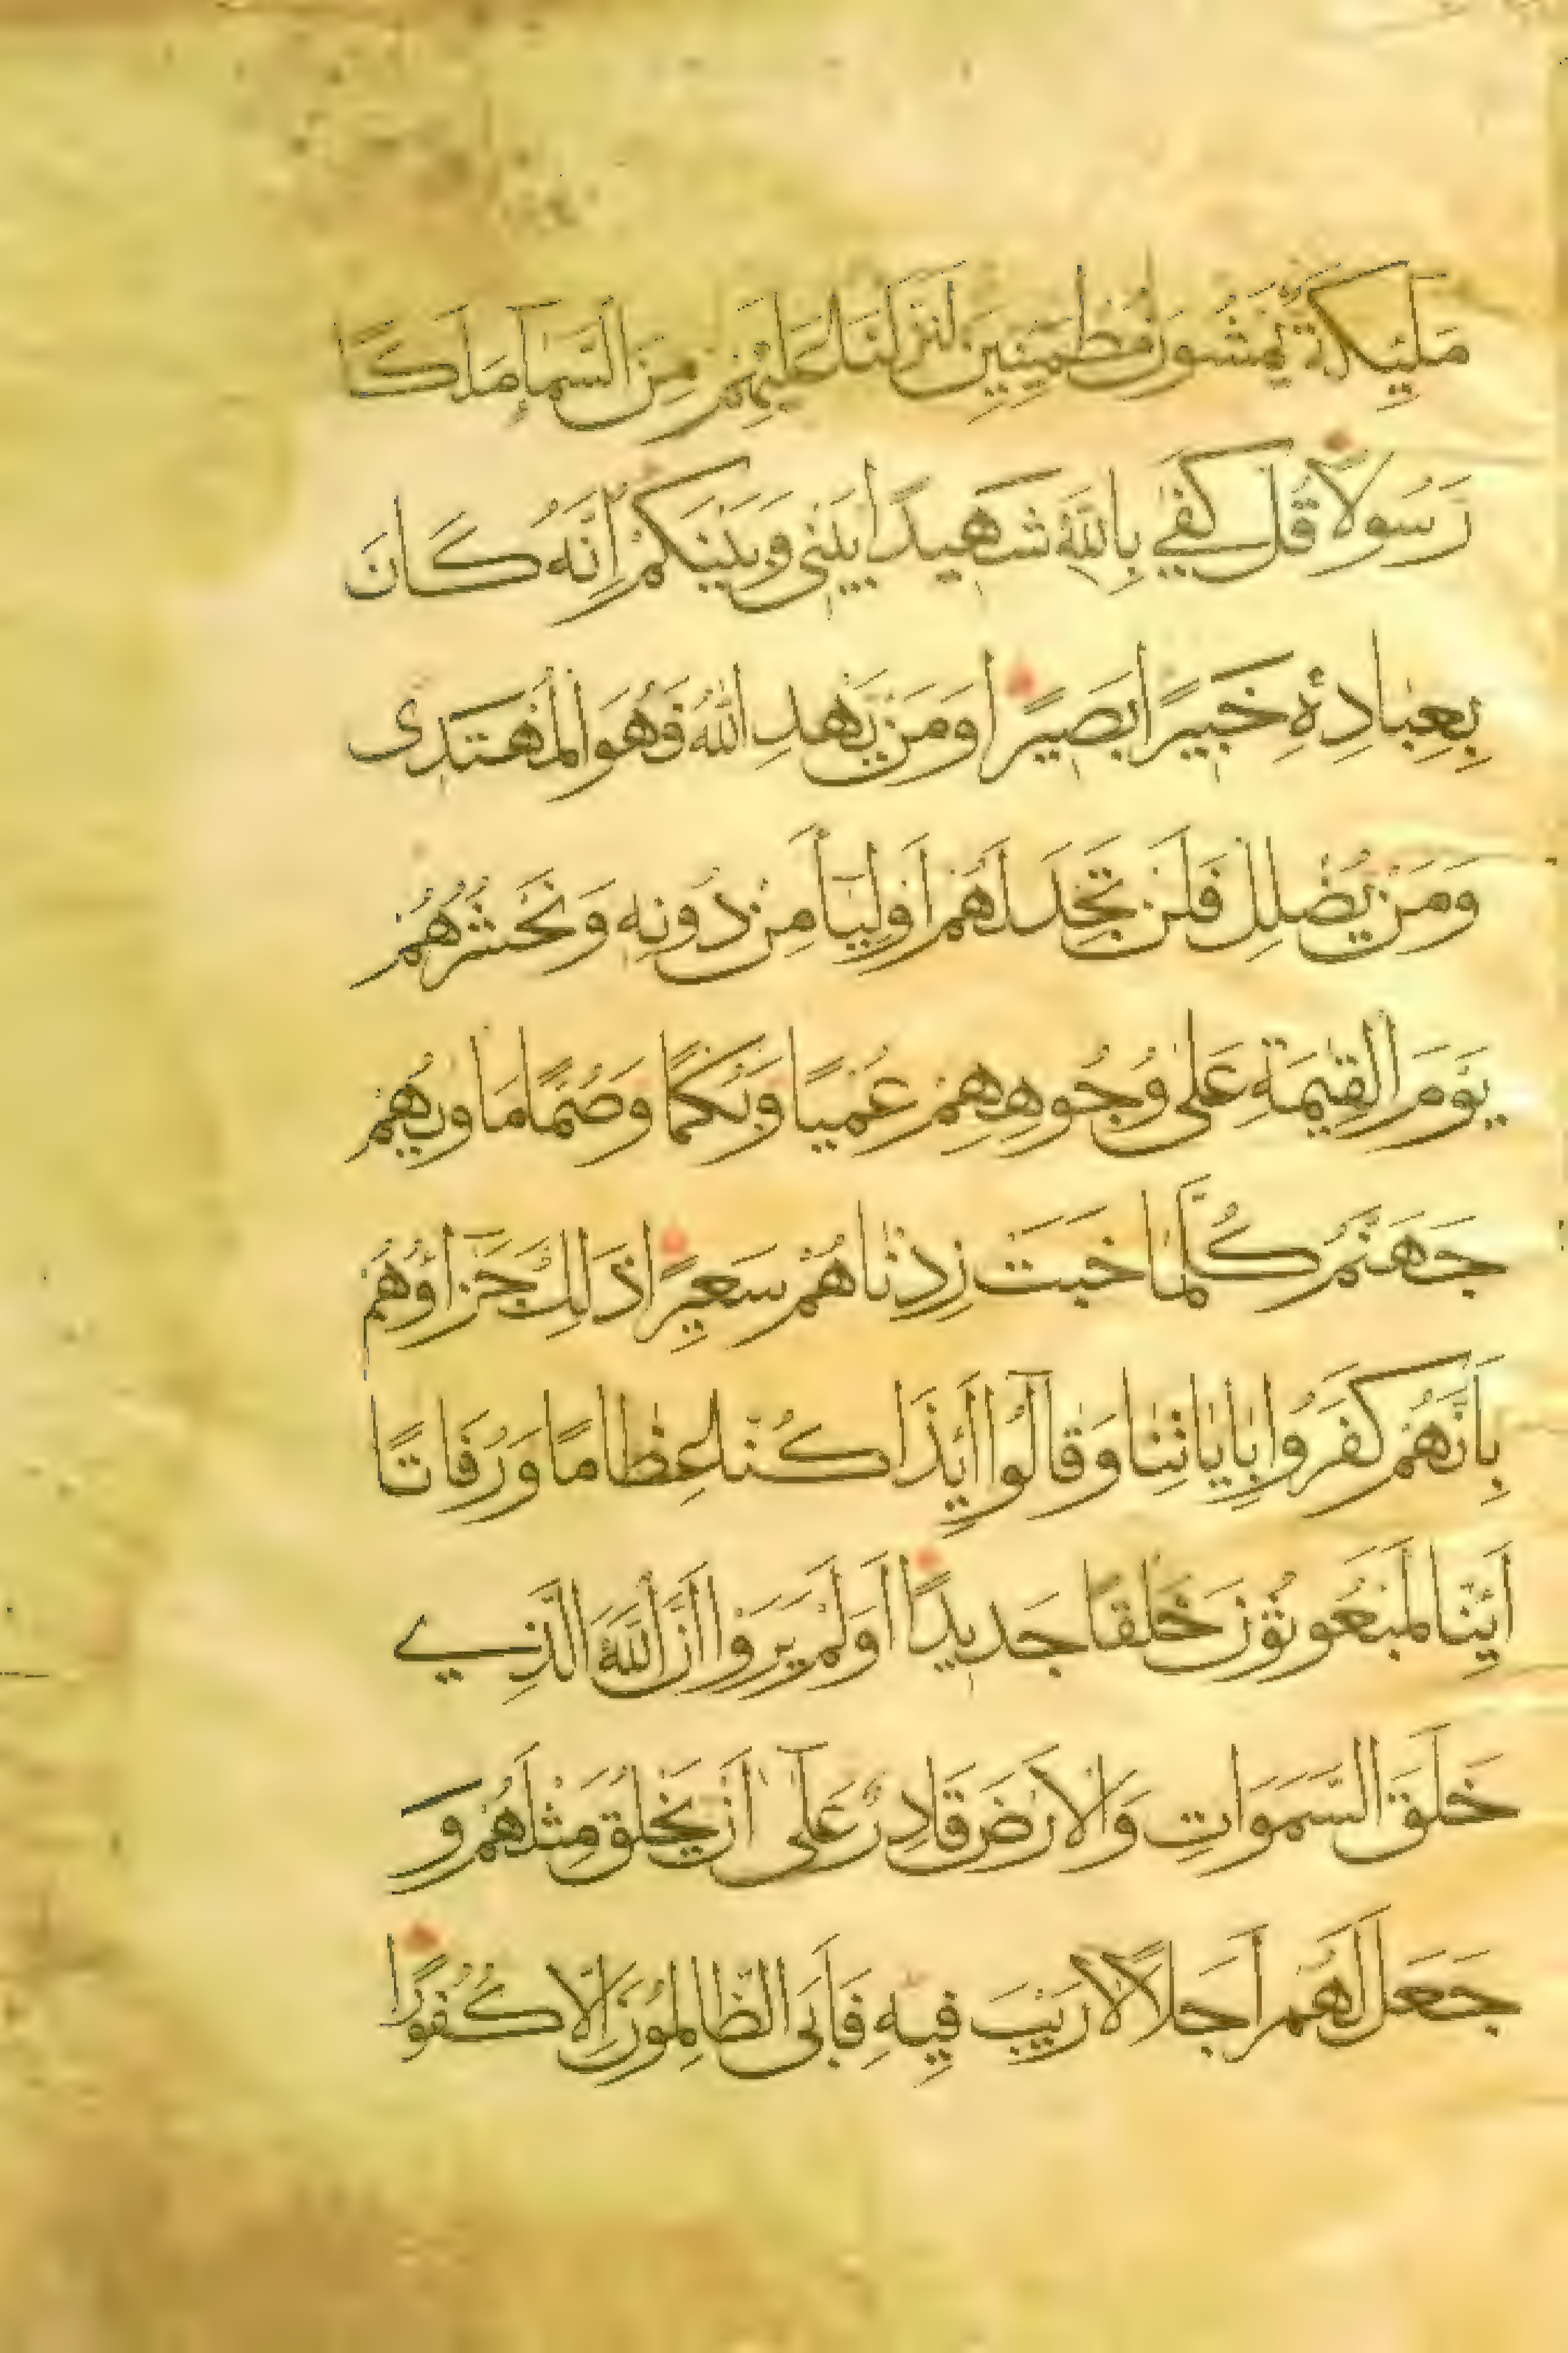 مَلٰٓئِكَةٌ يَمْشُونَ مُطْمَئِنِّينَ لَنَزَّلْنَا عَلَيْهِمْ مِنَ السَّمَآءِ مَلَكًا
رَسُولًا قُلْ كَفٰى بِاللّٰهِ شَهِيدًا بَيْنِى وَبَيْنَكُمْ اِنَّهُ كَانَ
بِعِبَادِهِ خَبِيرًا بَصِيرًا وَمَنْ يَهْدِ اللّٰهُ فَهُوَ الْمُهْتَدِى
وَمَنْ يُضْلِلْ فَلَنْ تَجِدَ لَهُمْ اَوْلِيَآءَ مِنْ دُونِهِ وَنَحْشُرُهُمْ
يَوْمَ الْقِيٰمَةِ عَلٰى وُجُوهِهِمْ عُمْيًا وَبُكْمًا وَصُمًّا مَاْوٰيهُمْ
جَهَنَّمُ كُلَّمَا خَبَتْ زِدْنَاهُمْ سَعِيرًا ذَلِكَ جَزَآؤُهُمْ
بِاَنَّهُمْ كَفَرُوا بِاٰيَاتِنَا وَقَالُوٓا اَئِذَا كُنَّا عِظَامًا وَرُفَاتًا
اَئِنَّا لَمَبْعُوثُونَ خَلْقًا جَدِيدًا اَوَلَمْ يَرَوْا اَنَّ اللّٰهَ الَّذِي
خَلَقَ السَّمَوَاتِ وَالْاَرْضَ قَادِرٌ عَلٰٓى اَنْ يَخْلُقَ مِثْلَهُمْ وَ
جَعَلَ لَهُمْ اَجَلًا لَا رَيْبَ فِيهِ فَاَبَى الظَّالِمُونَ اِلَّا كُفُورًا